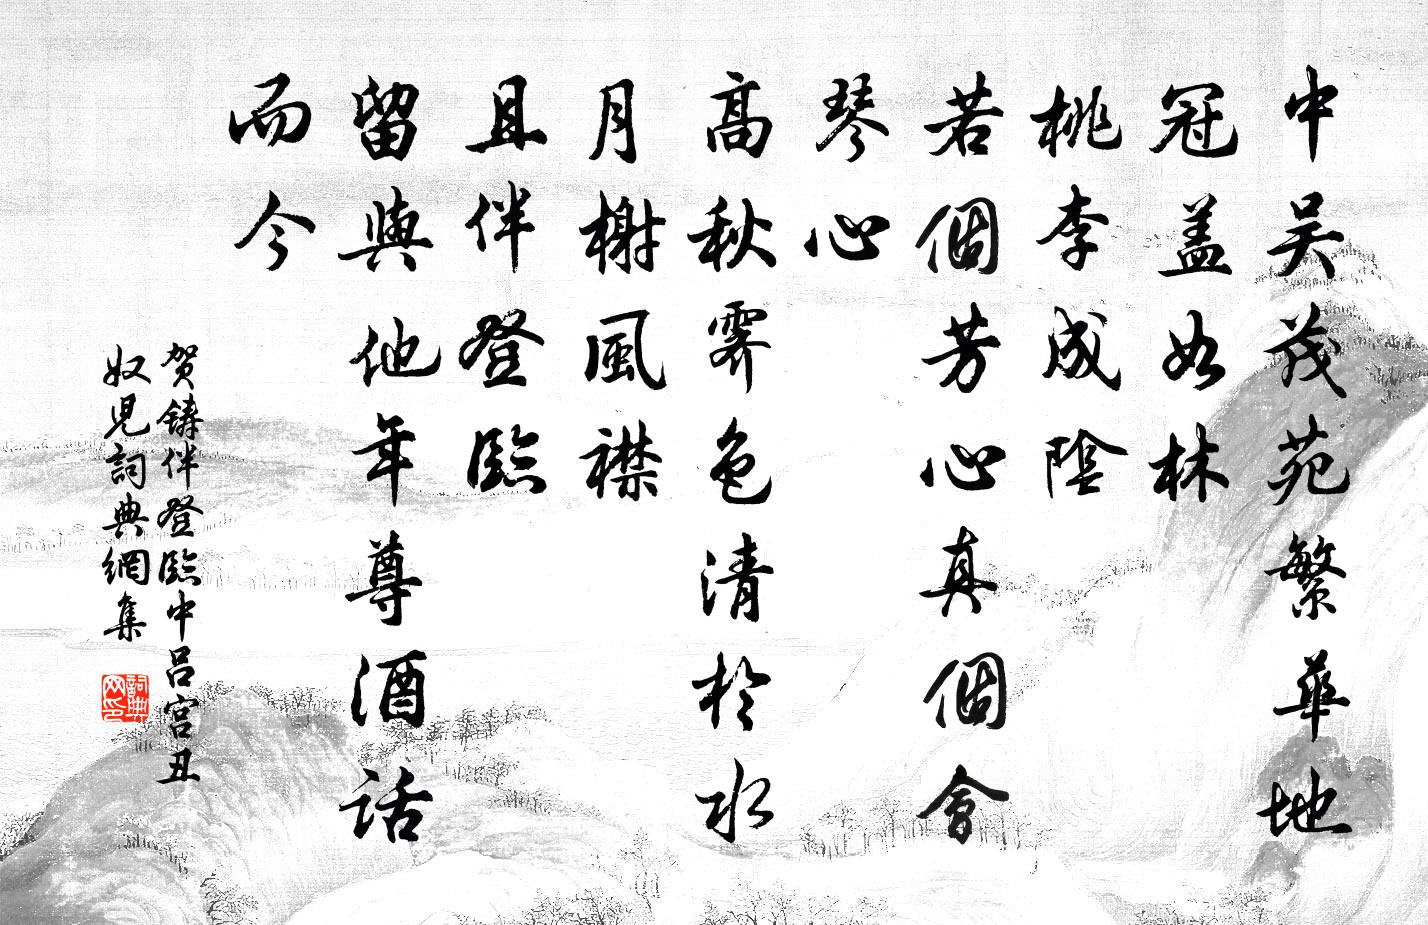 中吴茂苑繁華地
冠盖如林
桃李成陰
若個芳心真個會
琴心
高秋霽色清於水
月榭風襟
且伴登臨
留與他年尊酒話
而今
贺鑄伴登臨中吕宫丑
奴兒詞典網集
詞典
网印